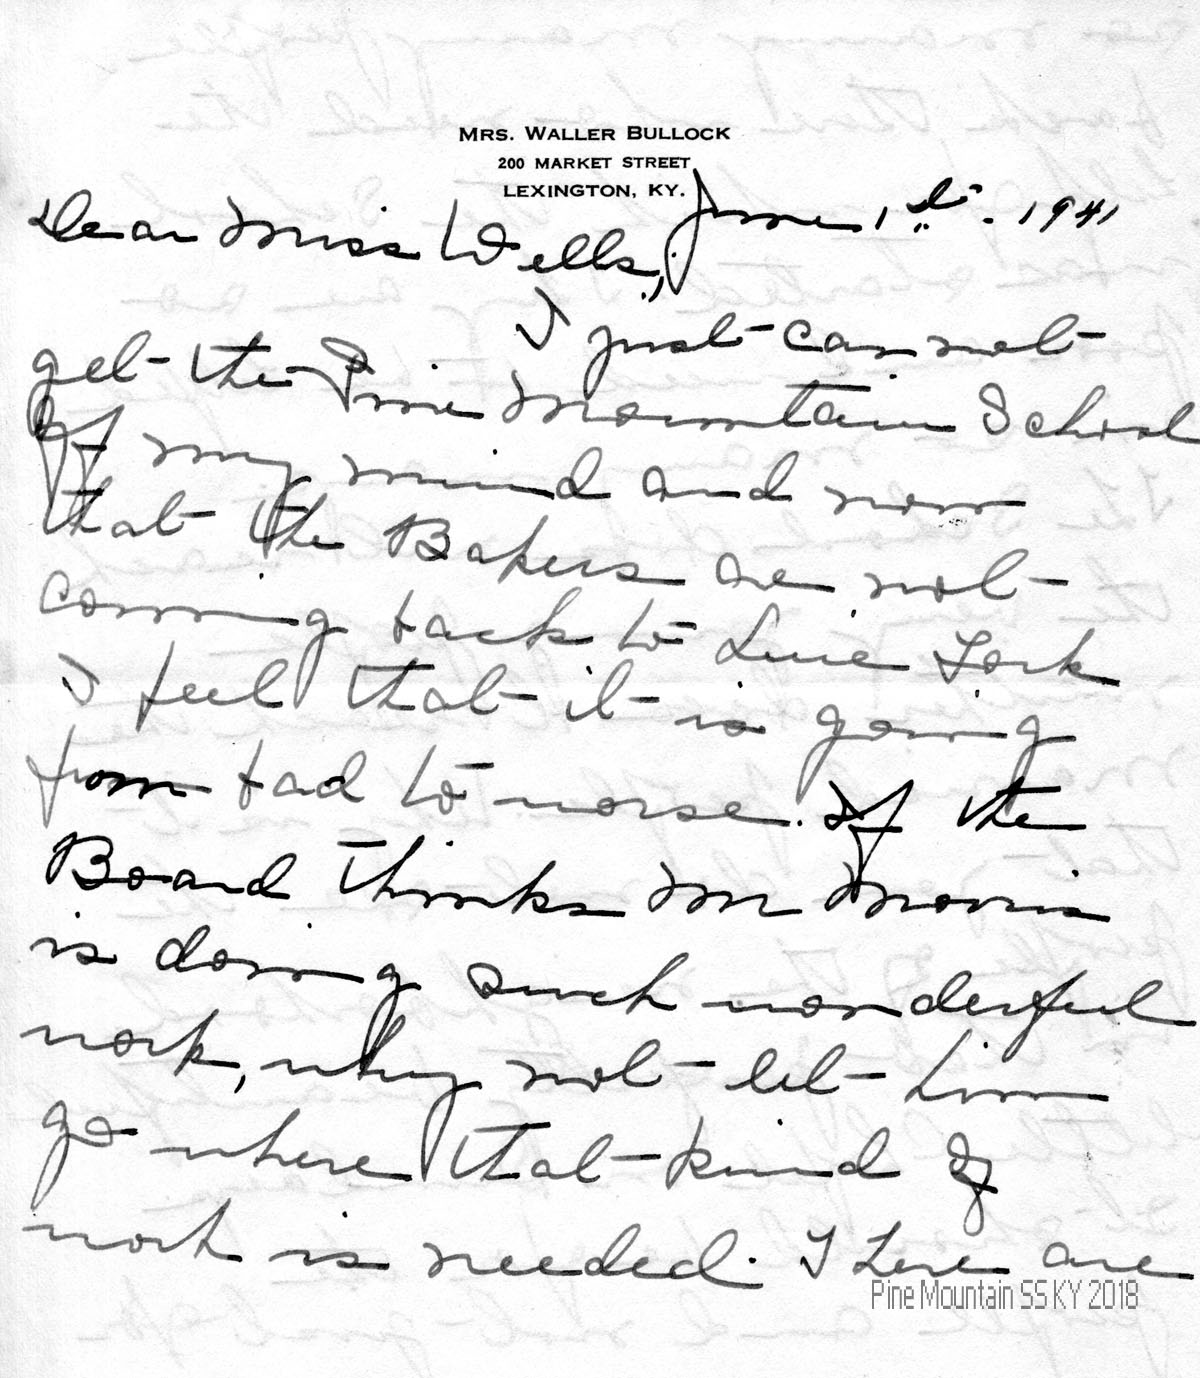 MRS. WALLER BULLOCK
200 MARKET STREET
LEXINGTON, KY.
June 1st. 1941
Dear Miss Wells,
I just cannot
get the Pine Mountain School
off my mind and now
that the Bakers are not
coming back to Line Fork
I feel that it is going
from bad to worse. If the
Board thinks Mr Morris
is doing such wonderful
work, why not let him
go where that kind of
work is needed. There are
Pine Mountain SS KY 2018